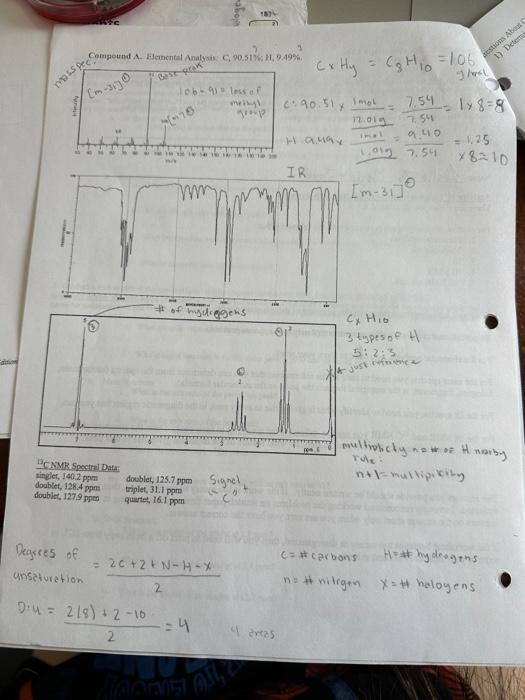 Compound A. Elemental Analysis: C, 90.51%; H, 9.49%.
mass spec.
CxHy = C8H10 = 106 g/mol
[m-31]⊕
Base peak
106-91 = loss of
methyl
group
C: 90.51 x 1mol / 12.01g = 7.54 / 7.54 = 1 x 8 = 8
H 9.49 x 1mol / 1.01g = 9.40 / 7.54 = 1.25
x 8 ≈ 10
IR
[m-31]⊕
# of hydrogens
Cx H10
3 types of H
5:2:3
just reference
multiplicity n = # of H nearby
rule:
n+1 = multiplicity
13C NMR Spectral Data:
singlet, 140.2 ppm
doublet, 128.4 ppm
doublet, 127.9 ppm
doublet, 125.7 ppm
triplet, 31.1 ppm
quartet, 16.1 ppm
Signel
Degrees of
unseturation = 2C+2+N-H-X / 2
C = # carbons H = # hydrogens
n = # nitrgen X = # halogens
D:u = 2(8)+2-10 / 2 = 4
4 areas